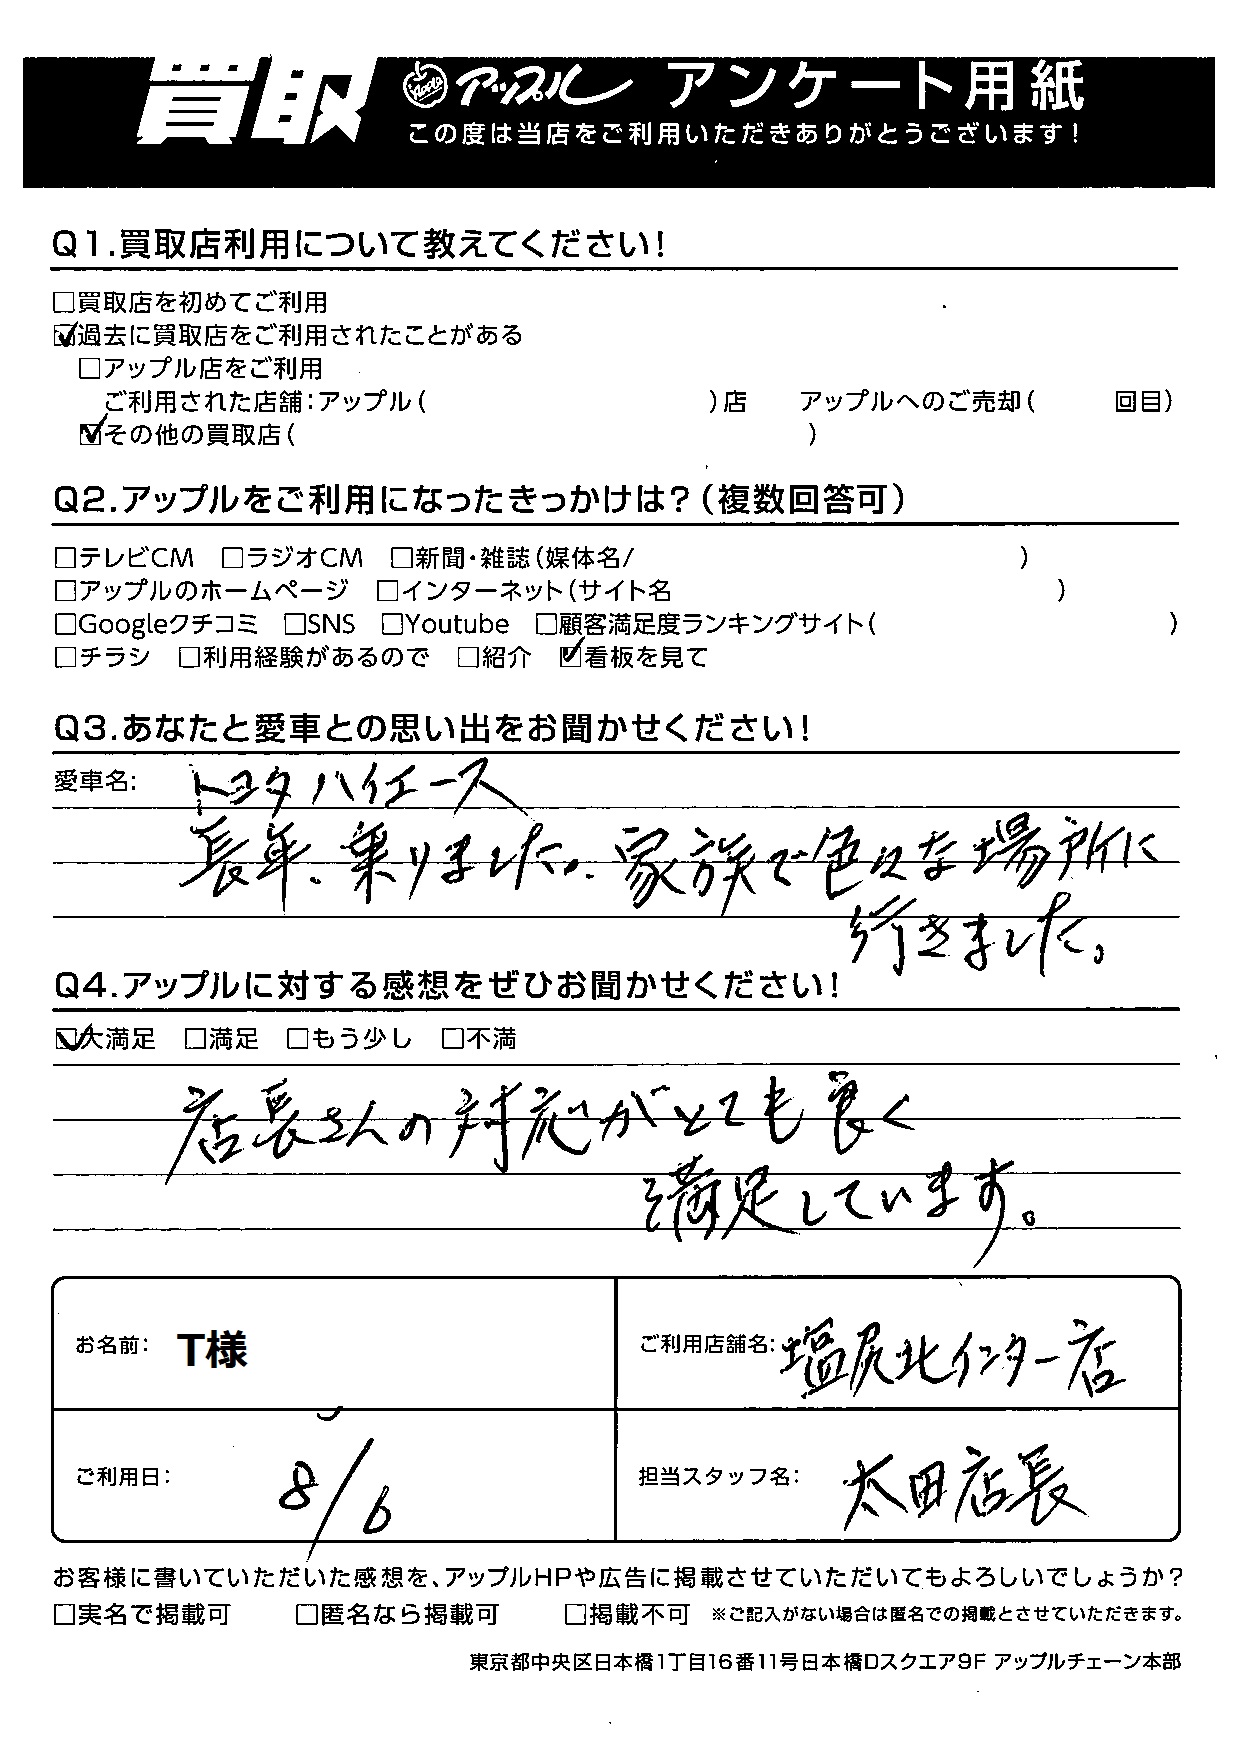 買取 Apple アップル アンケート用紙
この度は当店をご利用いただきありがとうございます!
Q1.買取店利用について教えてください!
□買取店を初めてご利用
☑過去に買取店をご利用されたことがある
□アップル店をご利用
ご利用された店舗:アップル( )店 アップルへのご売却( 回目)
☑その他の買取店( )
Q2.アップルをご利用になったきっかけは?(複数回答可)
□テレビCM □ラジオCM □新聞・雑誌(媒体名/ )
□アップルのホームページ □インターネット(サイト名 )
□Googleクチコミ □SNS □Youtube □顧客満足度ランキングサイト( )
□チラシ □利用経験があるので □紹介 ☑看板を見て
Q3.あなたと愛車との思い出をお聞かせください!
愛車名: トヨタ ハイエース
長年、乗りました。家族で色々な場所に
行きました。
Q4.アップルに対する感想をぜひお聞かせください!
☑大満足 □満足 □もう少し □不満
店長さんの対応がとても良く
満足しています。
お名前: T様 ご利用店舗名: 塩尻北インター店
ご利用日: 8/6 担当スタッフ名: 太田店長
お客様に書いていただいた感想を、アップルHPや広告に掲載させていただいてもよろしいでしょうか?
□実名で掲載可 □匿名なら掲載可 □掲載不可 ※ご記入がない場合は匿名での掲載とさせていただきます。
東京都中央区日本橋1丁目16番11号日本橋Dスクエア9F アップルチェーン本部